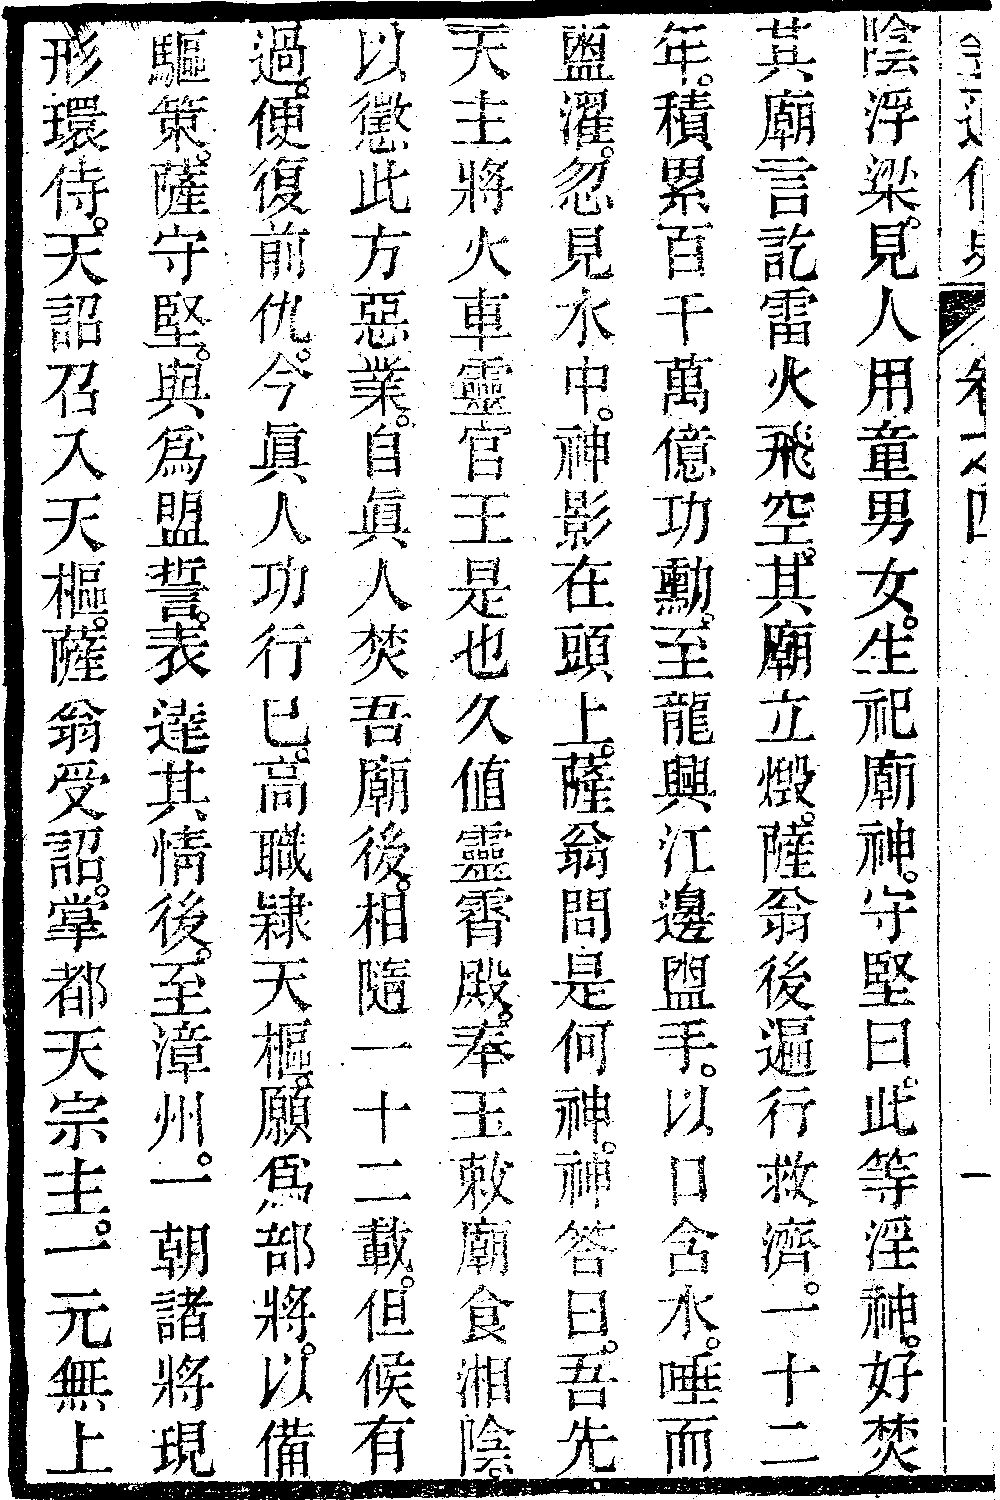 陰浮梁。見人用童男女。生祀廟神。守堅曰。此等淫神。好焚
其廟言訖雷火飛空。其廟立燬。薩翁後遍行救濟。一十二
年。積累百千萬億功勳。至龍興江邊盥手。以口含水。唾而
盥濯。忽見水中。神影在頭上。薩翁問是何神。神答曰。吾先
天主將火車靈官王是也久值靈霄殿。奉玉敕廟食湘陰。
以懲此方惡業。自眞人焚吾廟後。相隨一十二載。但候有
過。便復前仇。今眞人功行已。高職隸天樞。願爲部將。以備
驅策。薩守堅。與爲盟誓。表達其情後。至漳州。一朝諸將現
形環侍。天詔召入天樞。薩翁受詔。掌都天宗主。一元無上